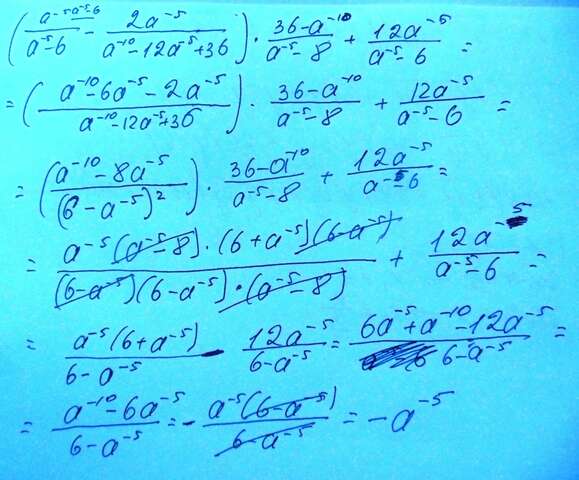 (a⁻⁵ ᵃ⁻⁵⁻⁶/(a⁻⁵-6) - 2a⁻⁵/(a⁻¹⁰-12a⁻⁵+36)) · (36-a⁻¹⁰)/(a⁻⁵-8) + 12a⁻⁵/(a⁻⁵-6) =
= ((a⁻¹⁰-6a⁻⁵-2a⁻⁵)/(a⁻¹⁰-12a⁻⁵+36)) · (36-a⁻¹⁰)/(a⁻⁵-8) + 12a⁻⁵/(a⁻⁵-6) =
= ((a⁻¹⁰-8a⁻⁵)/(6-a⁻⁵)²) · (36-a⁻¹⁰)/(a⁻⁵-8) + 12a⁻⁵/(a⁻⁵-6) =
= a⁻⁵(a⁻⁵-8)·(6+a⁻⁵)(6-a⁻⁵)/((6-a⁻⁵)(6-a⁻⁵)·(a⁻⁵-8)) + 12a⁻⁵/(a⁻⁵-6) =
= a⁻⁵(6+a⁻⁵)/(6-a⁻⁵) - 12a⁻⁵/(6-a⁻⁵) = (6a⁻⁵+a⁻¹⁰-12a⁻⁵)/(6-a⁻⁵) =
= (a⁻¹⁰-6a⁻⁵)/(6-a⁻⁵) = - a⁻⁵(6-a⁻⁵)/(6-a⁻⁵) = -a⁻⁵